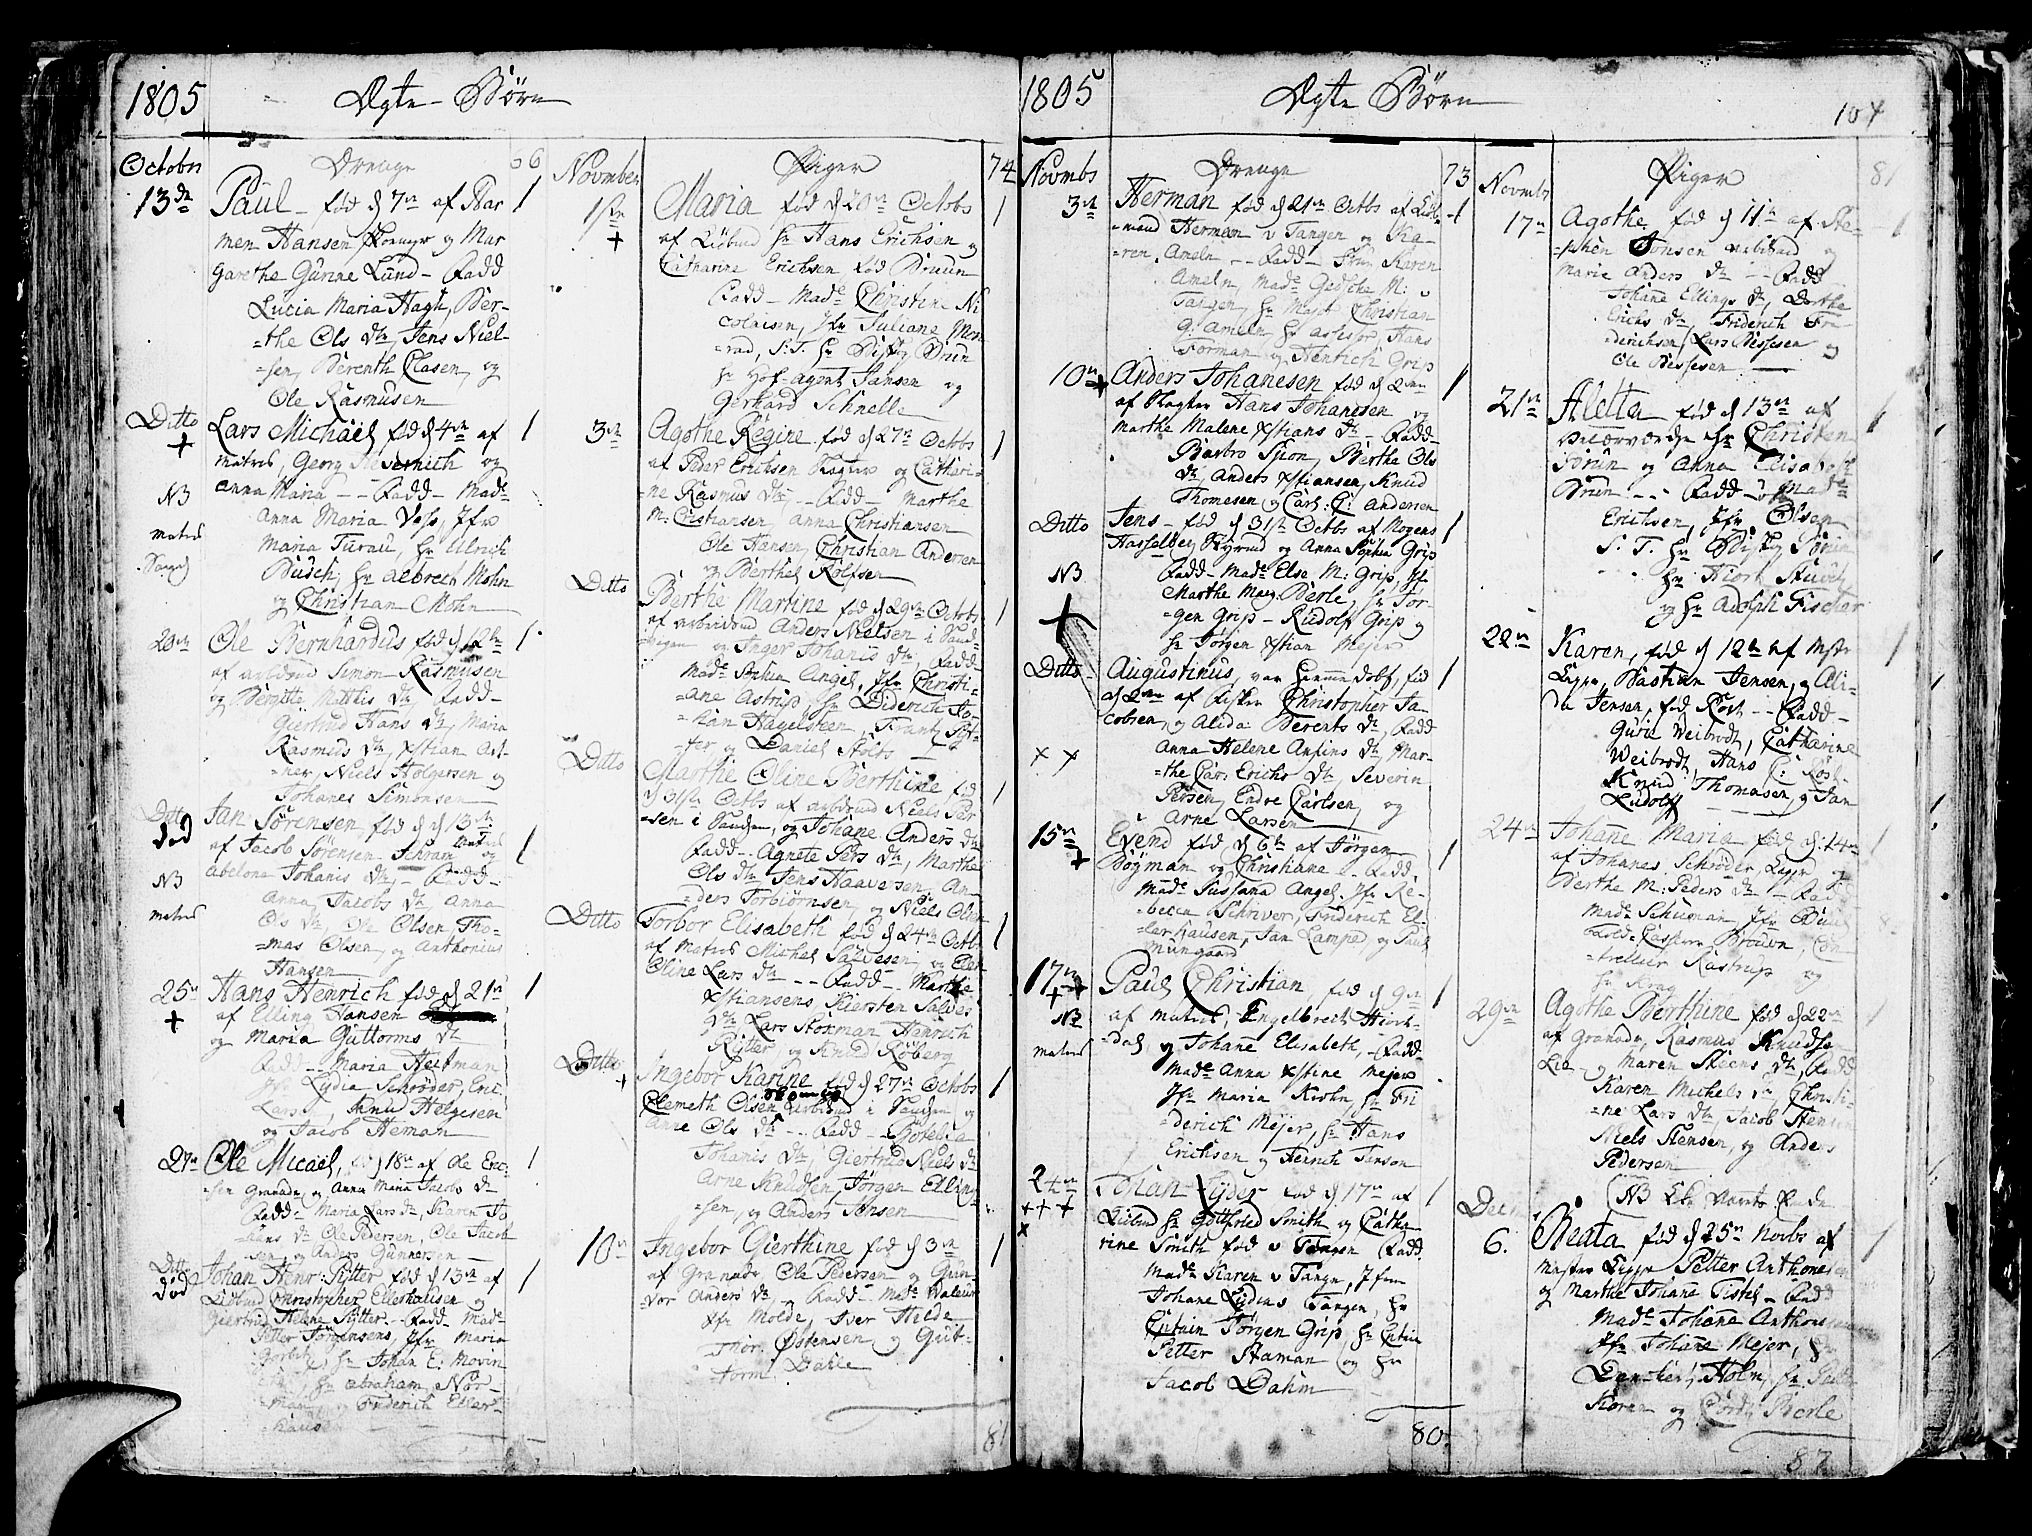 1805
Ægte - Børn
Octobr
Drenge
66
13de
Paul - fød d 7de af Har
1
men Hansen og Mar
garethe Gurine Lund - Fadd
Lucia Maria Hagh, Ber-
=the Ols Dtr, Jens Niel-
=sen, Berenth Clasen, og
Ole Rasmusen
Ditto
+
Lars Michael fød d 4de af
1
matros, Georg og
Anna Maria - - Fadd - Made
NB
matros
Anna Maria Voss, Jfr
Maria Turau, Hr Ulrich
Busch, Hr Albrecht Mohn
og Christian Mohn
20de
Ole Bernhardus fød d 12te
1
af arbdsmd Simon Rasmusen
og Bergitte Mattis Dtr, Fadd -
Giertrud Hans Dtr, Maria
Rasmus Dtr, Xstian
=ner, Niels Holgersen og
Johanes Simonsen
Ditto
død
Jan Sørensen, fød d 13de
af Jacob Sørensen Schram og
1
Abelona Johanis Dtr - Fadd -
NB
matros
Anna Jacobs Dtr, Anna
Ols Dtr Ole Olsen, Tho-
=mas Olsen, og Anthonius
Hansen
25de
+
Hans Henrich fød d 21de
1
af Elling Hansen
og Maria Guttorms Dtr
Fadd - Maria Heitman
Jfr Lydia Schrøder, Eric
Larsen, Knud Helgesen
og Jacob Heman
27de
Ole Micael, fød d 18de af Ole Eric-
1
=sen Granade, og Anna Maria Jacobs Dtr
Fadd - Maria Lars Dtr, Karen Jo
hans Dtr Ole Pedersen, Ole Jacob
sen, og Anders Gunnersen
Ditto
død
Johan Henr: Ritter fød d 13de af
1
Lidbud Christopher Ellerhusen og
Giertrud Helena Ritter - Fadd - Made
Petter Jørgensens, Jfr Maria
Hr Johan E: Movin
Hr Abraham Nor-
=man, og Friderich Eller-
=hausen
Novmber
Piger
74
1ste
+
Maria fød d 20de Octobr
1
af Lidbud Hr Hans Erichsen og
Catharine Erichsen fød Bruun
Fadd - Made Christine Ni
colaisen, Jfr Juliane Mon
=rad, S: T. Hr Bisk Brun
Hr Hof-agent Jansen og
Gerhard Schnelle
3de
Agathe Regine fød d 27de Octobr
1
af Peder Erichsen Slagter og Cathari-
=ne Rasmus Dtr, - - Fadd - Marthe
M: Cristiansen, Anna Christiansen
Ole Hansen, Christian Andersen
og Berthel Rolfsen
Ditto
Berthe Martine fød d 29de Octobr
1
af arbeidsmd Anders Nielsen i Sand-
=vigen og Inger Johanis Dtr, Fadd -
Made Sophia Angel, Jfr Christi-
=ane Astrup, Hr Diderich Jo-
=han Hagelsteen, Frantz Pot-
=ter og Daniel Stolts
Ditto
Marthe Oline Berthine fød
1
d 31ste Octbr af arbdsmd Niels Lar
=sen i Sanden, og Johane Anders Dtr
Fadd - Agnete Pers Dtr, Marthe
Ols Dtr Jens Haaversen, An-
=ders Torbiørnsen, og Niels Olsen
Ditto
Torbor Elisabeth fød d 24de Octbr
1
af matros Michel Salvesen og Elen
Oline Lars Dtr - - Fadd - - Marthe
Xstiansens Kiersten Salves
Dtr Lars Stokman Henrich
Ritter, og Knud Røberg
Ditto
+
Ingebor Karine fød d 27de Octobr
1
Clemeth Olsen arbdsmd i Sanden og
Ane Ols Dtr - - Fadd - Botelia
Johanis Dtr, Giertrud Niels Dtr
Arne Knudsen, Jørgen Elling
sen, og Anders Jensen
10de
Ingebor Gierthine fød d 3de
1
af Granade Ole Pedersen og Gun-
=vor Anders Dtr - Fadd - Made Walaun
Jfr Molde, Iver Hilde
Thor Østensen og Gut-
torm Dahle
81
1805
Ægte Børn
104
Novmbr
Drenge
73
3de
Herman fød d 21de Octbr af Lidb-
1
=mand Herman v Tangen og Ka-
=ren Ameln - - Fadd - Frue Karen
Ameln, Made Gedsche M:
Tangen, Hr Majer Christian
G: Ameln, Hr Assessor, Hans
Forman og Henrich Grip
10de
+
Anders Johanesen fød d 2den
1
af Slagter Hans Johanesen og
Marthe Malene Xstians Dtr - Fadd -
Barbro Spon, Berthe Ols
Dtr, Anders Xstiansen, Knud
Thomesen og Carl: C: Andersen
Ditto
Jens - fød d 31ste Octbr af Mogens
1
Hasselberg Styrmd og Anna Sophia Grip
NB
Fadd - Made Else M: Grip, Jfr
Marthe Marg. Berle, Hr Jør-
+
=gen Grip - Rudolf Grip og
Hr Jørgen Xstian Mejer
Ditto
Augustinus, var hiemmedøbt, fød
1
d 2den af Fisker Christopher Ja-
cobsen, og Alida Berents Dtr, Fadd
x x
Anna Helene Anfins Dtr, Mar-
=the Cars Erichs Dtr Severin
Persen, Endre Carlsen, og
Arne Larsen
15de
+
Evend fød d 6te af Jørgen
1
Bøgman og Christiane - - Fadd -
Made Susanna Angel, Jfr Re-
=becca Schriver, Friderich El-
=lerhausen, Jan Lamped, og Paul
Mungaard
17de
+
Paul Christian fød d 9de
1
NB
matros
af Matros, Engelbrecht Hiort-
=dal og Johane Elisabeth, - Fadd -
Made Anna Xstine Mejer
Jfr Maria Krohn, Hr Fri
=derich Mejer, Hr Hans
Erichsen og Henrich Janson
24de
+ + +
x
Johan Lyder fød d 17de af
1
Lidbud Hr Gottfried Smith, og Catha
rine Smith fød v Tangen Fadd
Made Karen v Tange, Jfru
Johane Lydius Tangen, Hr
Captain Jørgen Grip, Hr Captain
Petter Haman og Hr
Jacob Dahm
80
Novmbr
Piger
81
17de
Agathe fød d 11te af Ste-
1
=phen Jonsen arbdsmd og
Marie Anders Dtr - - Fadd
Johane Ellings Dtr, Dorthe
Erichs Dtr, Friderich Fre-
=derichsen, Lars Bessesen og
Ole Bessesen
21de
Aletta fød d 13de af
1
Velærværdige Hr Christen
Brun og Anna Elisabeth
Brun - - - Fadd - Made
Erichsen, Jfr. Olsen
S. T. Hr Bisk Brun
Hr Hiort
og Hr Adolph Fischer
22de
Karen, fød d 12te af Mstr
1
Bastian Jensen, og Ali-
da Jensen, fød Rost - - Fadd -
Guria Weibrodt, Catharine
Weibrodt, Hans C: Rost
Knud Thomasen, og Jan
Ludolff
24de
Johane Maria fød d. 14de
1
af Johanes Schrøder, og
Berthe M: Peders Dtr - Fadd
Made Schuman, Jfr
Caspera Brouwn, Con
=trolleur Kastrup og
Hr Krag
29de
Agathe Berthine fød d 22de
1
af Granade, Rasmus Knudsen
Lie - og Maren Steens Dtr, Fadd
Karen Michels Dtr Christi-
=ne Lars Dtr, Jacob Stensen
Niels Stensen, og Anders
Pedersen
Decmbr
6.
Beata fød d 25de Novbr af
1
Petter Anthonesen
og Marthe Johane Fistel - Fadd
Made Johane Anthonesen
Jfr Johane Mejer, Hr
Holm, Hr
og Berle
87